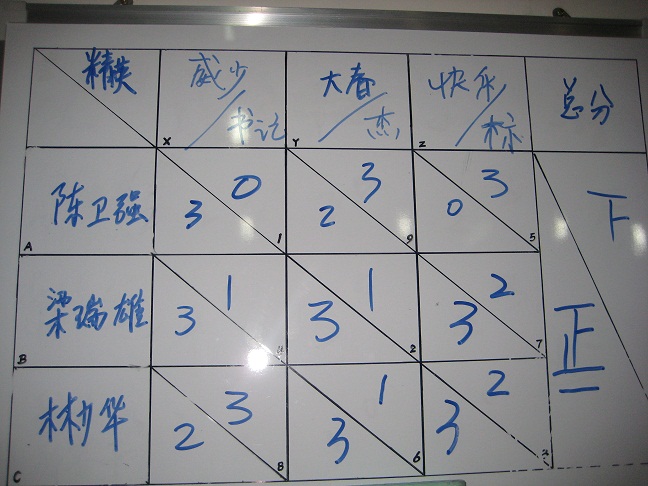 精英 威少/书记 大春/杰 快乐/标 总分
X Y Z
陈卫强 3 0 2 3 0 3 下
A 1 9 5
梁瑞雄 3 1 3 1 3 2 正
B 4 2 7 二
林少华 2 3 3 1 3 2
C 8 6 3